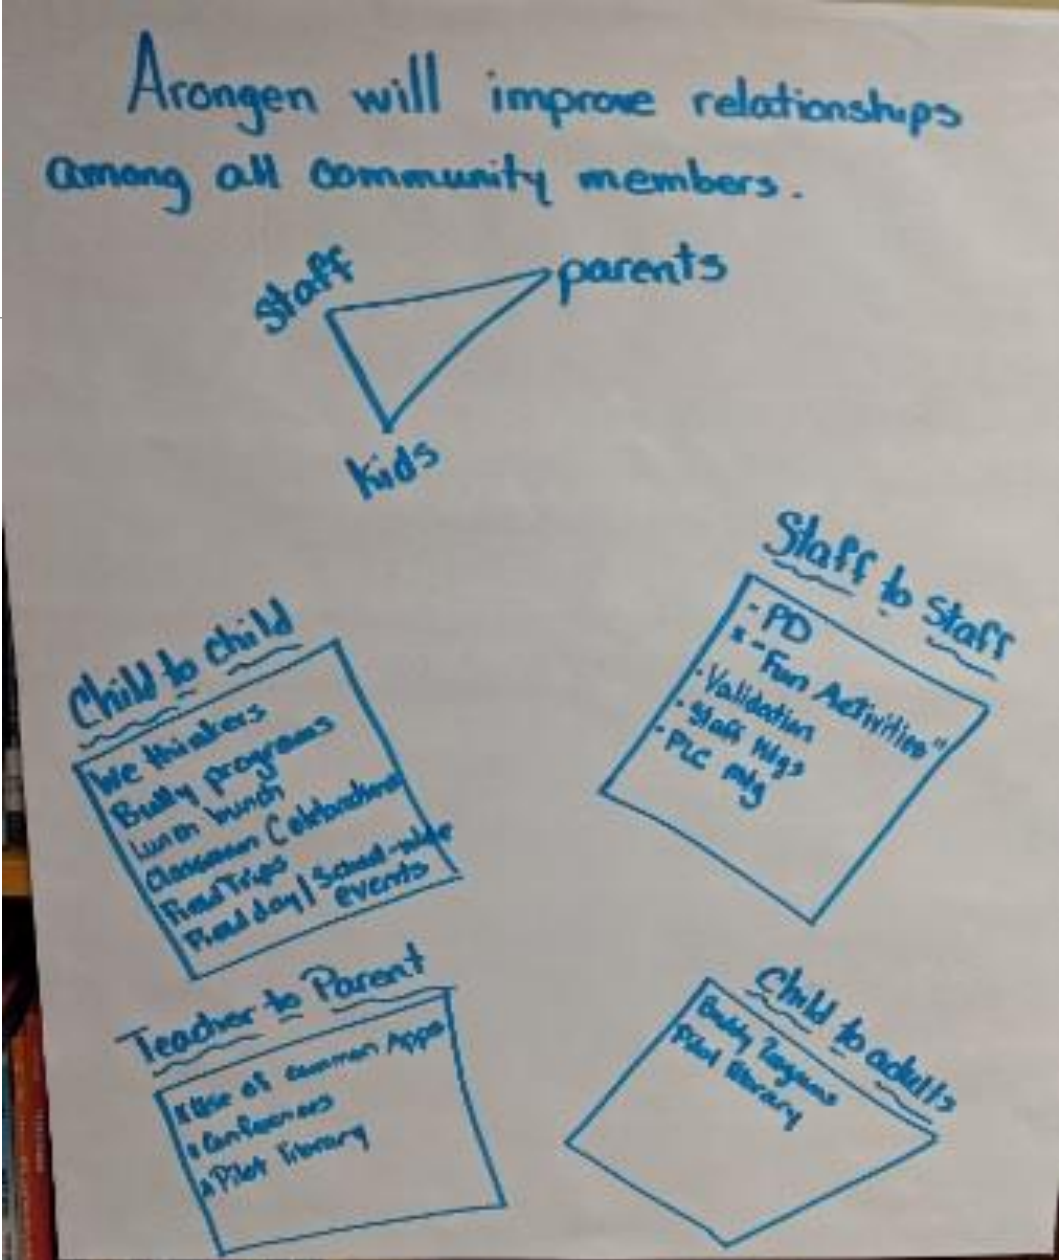 Arongen will improve relationships
among all community members.
staff
parents
kids
Child to child
We thinkers
Bully programs
Lunch bunch
Classroom Celebrations
Field Trips
Field day / School-wide
events
Staff to Staff
- PD
- "Fun Activities"
- Validation
- Staff Mtgs
- PLC Mtg
Teacher to Parent
Use of common Apps
Conferences
Pilot library
Child to adults
Buddy
Pilot library